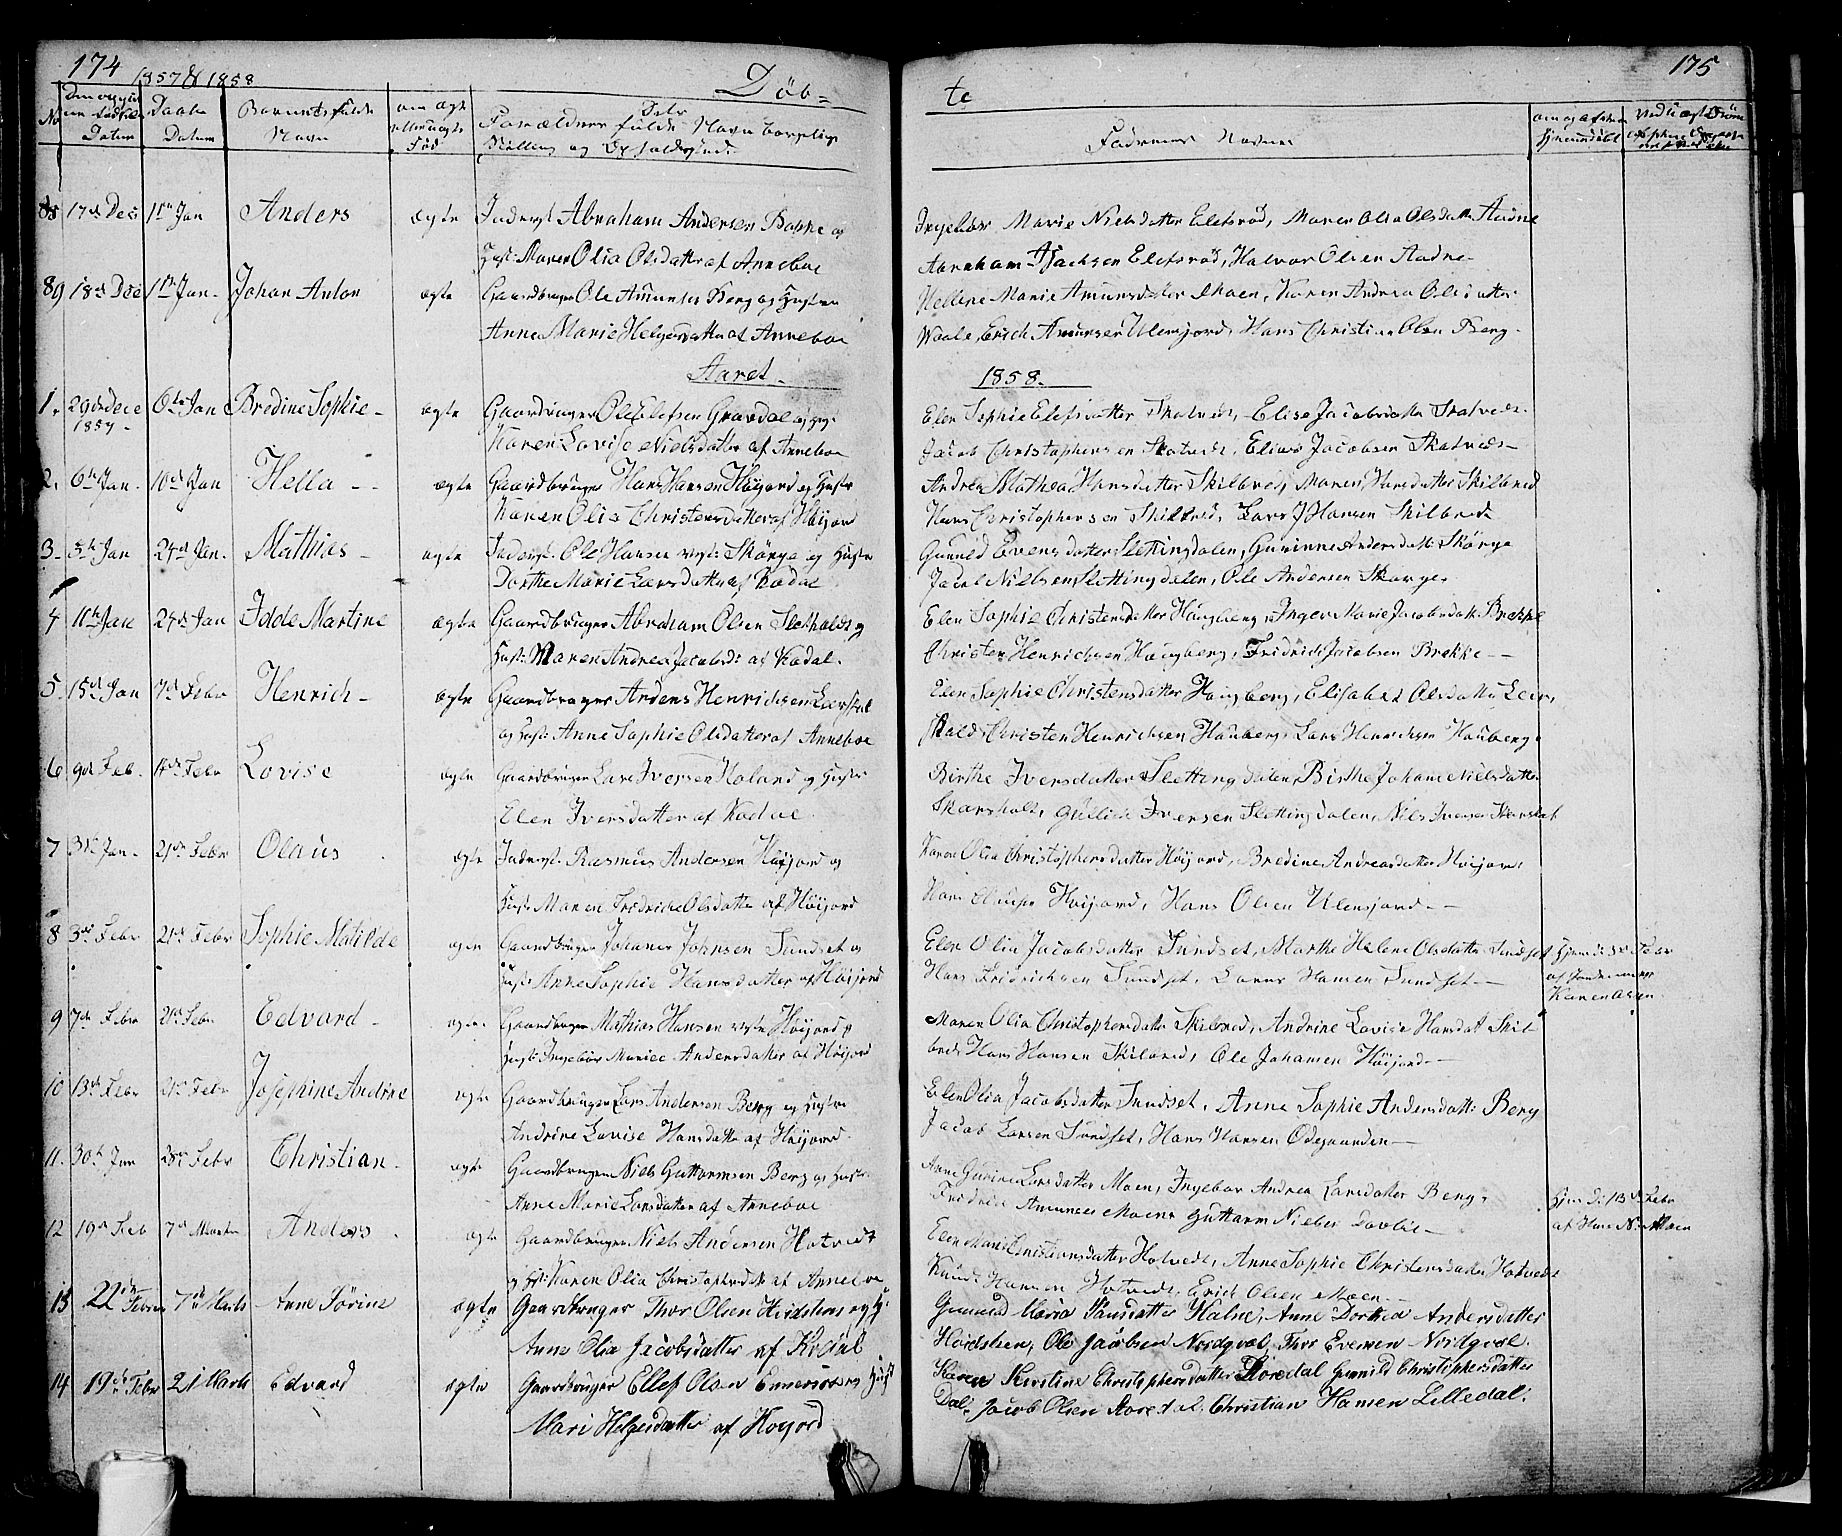 174
1857 & 1858
Døb=
te
175
No
Datum
Daabs
Datum
Barnets fulde
Navn
om ægte
eller uægte
Fød
Forældrenes fulde Navn borgelige
Stilling og Opholdssted.
Faddernes Navne
17de Dec 1ste Jan Anders ægte Inderst Abraham Andersen Bakke og
Hust: Maren Olia Olsdatter af Anneboe
Ingebor Marie Nielsdatter Elefsrød, Maren Olia Olsdatter Aadne
Abraham Isachsen Elefsrød, Halvor Olsen Aadne
89 18de Dec 1ste Jan. Johan Anton ægte Gaardbruger Ole Amunsen Berg og Hustru
Anne Marie Helgesdatter af Anneboe
Helline Marie Amunsdatter Moen, Karen Andrea Olsdatter
Waale, Erich Amunsen Ulensjord, Hans Christian Olsen Berg.
Aaret 1858.
1. 29de Dece 6te Jan Bredine Sophie ægte Gaardbruger Ole Elefsen Gravdal og Hus
1857
Karen Lovise Nielsdatter af Anneboe
Elen Sophie Elefsdatter Skatvedt, Elise Jacobsdatter Skatvedt
Jacob Christophersen Skatvedt, Elias Jacobsen Skatvedt
2. 6te Jan. 10de Jan Hella ægte Gaardbruger Hans Hansen Høijord og Hustr
Karen Olia Christensdatter af Høijord
Andrea Mathea Hansdatter Skilbred, Maren Hansdatter Skilbred
Hans Christophersen Skilbred, Lars J Hansen Skilbred
3. 5te Jan 24de Jan. Mathias ægte Inderst. Ole Hansen Skørge og Hustr
Dorthe Marie Larsdatter af Kodal
Gunild Evensdatter Slettingdalen, Gurinne Andersdatt: Skørge
Jacob Nielsen Slettingdalen, Ole Andersen Skørge.
4 11te Jan 24de Jan Idde Martine ægte Gaardbruger Abraham Olsen Sletholdt og
Hust: Maren Andrea Jacobsd: af Kodal.
Elen Sophie Christensdatter Haugberg, Inger Marie Jacobsdatt: Brekke
Christen Henrichsen Haugberg, Fridrich Jacobsen Brekke
5. 15de Jan 7de Febr Henrich ægte Gaardbruger Anders Henrichsen
og Hust: Anne Sophie Olsdatter af Anneboe
Elen Sophie Christensdatter Haugberg, Elisabed Olsdatter Leer
skald, Christen Henrichsen Hauberg, Lars Henrichsen Hauberg.
6 9de Feb. 14de Febr Lovise ægte Gaardbruger Lars Iversen Holand og Hustr
Elen Iversdatter af Kodal.
Birthe Iversdatter Slettingdalen, Birthe Johane Nielsdatter
Skarsholt, Gullich Iversen Slettingdalen, Niels Iversen Skarsholt
7 31te Jan. 21de Febr Olaus ægte Inderst: Rasmus Andersen Høijord og
Hust: Maren Fridriche Olsdatter af Høijord
Karen Olia Christophersdatter Høijord, Bredine Andreasdatter Høijord
Hans Høijord, Hans Olsen Ulensjord
8 3de Febr 21de Febr Sophie Matilde ægte Gaardbruger Johanes Johnsen Sundset og
Hust: Anne Sophie Hansdatter af Høijord
Elen Olia Jacobsdatter Sundset, Marthe Helene Olsdatter Sundset
Hans Fridrichsen Sundset, Hansen Sundset
Hjemdøbt Febr
af Jordemoder
Karen
9 7de Febr 21de Febr Edvard ægte Gaardbruger Mathias Hansen Høijord og
Hust: Ingebor Andersdatter af Høijord
Maren Olia Christophersdatter Skilbred, Andrine Lovise Hansdat Skil
bred, Hans Hansen Skilbred, Ole Johansen Høijord
10 13de Febr 21de Febr Josephine Andrine ægte Gaardbruger Lars Andersen Berg og Hustru
Andrine Lovise Hansdatter af Høijord.
Elen Olia Jacobsdatter Sundset, Anne Sophie Andersdatt: Berg
Jacob Larsen Sundset, Hans Hansen Ødegaarden
11. 30te Jan 28de Febr Christian. ægte Gaardbruger Niels Guttormsen Berg og Hustr
Anne Marie Larsdatter af Anneboe
Anne Gurine Larsdatter Moen, Ingebor Andrea Larsdatter Berg,
Fridrich Amunsen Moen, Guttorm Nielsen
Hjemd: 13de Febr
af Hans N. Moen
12 19de Feb 7de Marts Anders ægte Gaardbruger Niels Andersen Hotvedt
og Hst: Karen Olia Christophersdt af Anneboe
Elen Marie Christiansdatter Hotvedt, Anne Sophie Christensdatter Hotvedt
Knud Hansen Hotvedt, Erich Olsen Moen
13 22de Febru 7de Marts Anne Sørine ægte Gaardbruger Thor Olsen Heidsteen og H:
Anne Olia Jacobsdatter af Kodal
Gunnild Maria Paulsdatter Halne, Anne Dorthea Andersdatter
Heidsteen, Ole Jacobsen Nordqval, Thor Evensen Nordqval.
14 19de Febr 21 Marts Edvard ægte Gaardbruger Ellef Olsen Hust
Mari Helgesdatter af Hoyjord
Karen Kirstine Christophersdatter Goredal, Gunnild Christophersdatter
Dal, Jacob Olsen Goredal, Christian Hansen Lilledal.